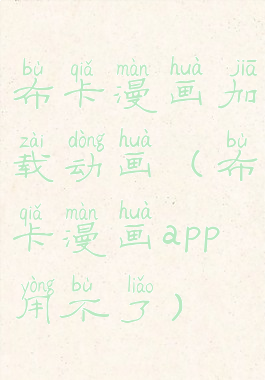 bù qiǎ màn huà jiā
布卡漫画加
zài dòng huà bù
载动画（布
qiǎ màn huà
卡漫画app
yòng bù liǎo
用不了）